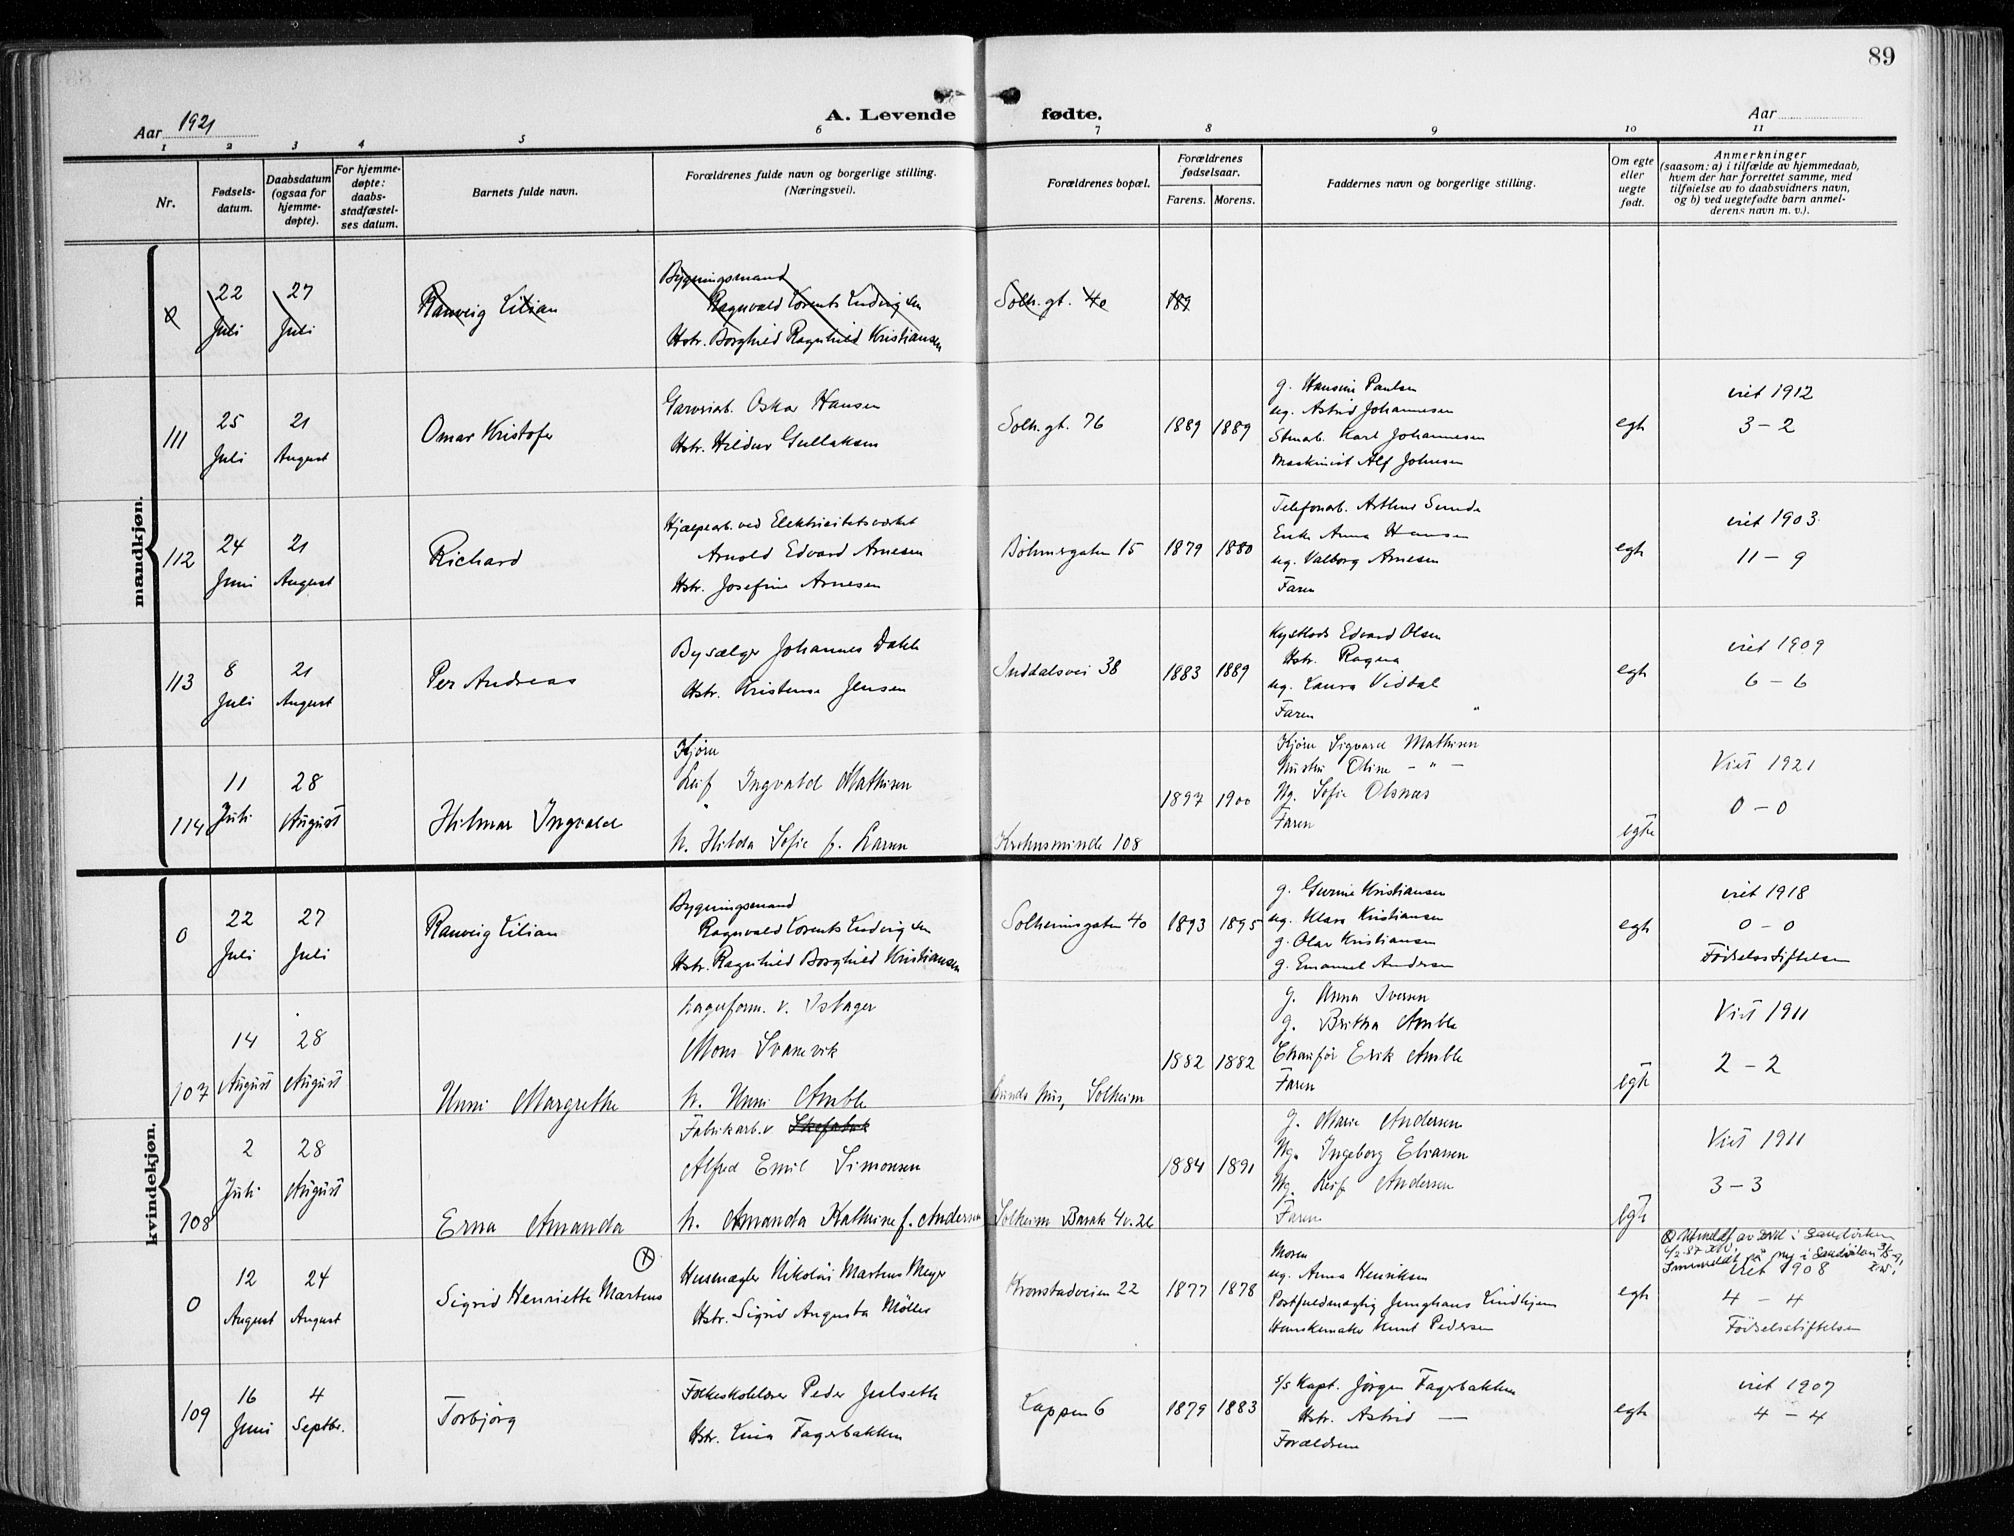 89
Aar 1921
A. Levende fødte.
Aar
1 2 3 4 5 6 7 8 9 10 11
Nr.
Fødsels-
datum.
Daabsdatum
(ogsaa for
hjemme-
døpte).
For hjemme-
døpte:
daabs-
stadfæstel-
ses datum.
Barnets fulde navn.
Forældrenes fulde navn og borgerlige stilling.
(Næringsvei).
Forældrenes bopæl.
Forældrenes
fødselsaar.
Farens. Morens.
Faddernes navn og borgerlige stilling.
Om egte
eller
uegte
født.
Anmerkninger
(saasom: a) i tilfælde av hjemmedaab,
hvem der har forrettet samme, med
tilføielse av to daabsvidners navn,
og b) ved uegtefødte barn anmel-
derens navn m. v.).
mandkjøn.
0
22
Juli
27
Juli
Ranveig Lilian
Bygningsmand
Ragnvald Lorents Ludvigsen
Hstr. Borghild Ragnhild Kristiansen
Solh. gt. 40
189
111
25
Juli
21
August
Omar Kristofer
Garveriarb. Oskar Hansen
Hstr. Hildur Gullaksen
Solh. gt. 76
1889
1889
g. Hansine Paulsen
ug. Astrid Johannesen
Stuarb. Karl Johannesen
Maskinist Alf Johnsen
egte
viet 1912
3 – 2
112
24
Juni
21
August
Richard
Hjælpearb. ved Elektricitetsverket
Arnold Edvard Arnesen
Hstr. Josefine Arnesen
Bøhmergaten 15
1879
1880
Telefonarb. Arthur Sunde
Enke Anna Hansen
ug. Valborg Arnesen
Faren
egte
viet 1903
11 – 9
113
8
Juli
21
August
Per Andreas
Bysælger Johannes Dahle
Hstr. Kristense Jensen
Inddalsvei 38
1883
1889
Kystlods Edvard Olsen
Hstr. Ragna
ug. Laura Viddal
Faren
egte
viet 1909
6 – 6
114
11
Juli
28
August
Hilmar Ingvald
Kjører
Leif Ingvald Mathisen
h. Hilda Sofie f. Larsen
Krohnsminde 108
1897
1900
Kjører Sigvard Mathisen
Hustru Oline – " –
Ug. Sofie Olsnæs
Faren
egte
Viet 1921
0 – 0
kvindekjøn.
0
22
Juli
27
Juli
Ranveig Lilian
Bygningsmand
Ragnvald Lorents Ludvigsen
Hstr. Ragnhild Borghild Kristiansen
Solheimsgaten 40
1893
1895
g. Gurine Kristiansen
ug. Klara Kristiansen
g. Olav Kristiansen
g. Emanuel Andersen
egte
viet 1918
0 – 0
Fødselsstiftelsen
107
14
August
28
August
Unni Margrethe
Lagerform. v.
Mons Svanevik
h. Unni Amble
Lunds hus, Solheim
1882
1882
g. Anna Iversen
g. Britha Amble
Chaufør Erik Amble
Faren
egte
Viet 1911
2 – 2
108
2
Juli
28
August
Erna Amanda
Fabrikarb. v. Skofabrik
Alfred Emil Simonsen
h. Amanda Kathrine f. Andersen
Solheim Barak 4 v. 26
1884
1891
g. Marie Andersen
Ug. Ingeborg Eliassen
Ug. Leif Andersen
Faren
egte
Viet 1911
3 – 3
0
12
August
24
August
Sigrid Henriette Martens
Husmægler Nikolai Martens Meyer
Hstr. Sigrid Augusta Møller
Kronstadveien 22
1877
1878
Moren
ug. Anna Henriksen
Postfuldmægtig Junghans Lindkjenn
Hanskemaker Knut Pedersen
egte
Utmeldt av Dnk i Sandviken
Innmeldt på ny i Sandviken
viet 1908
4 – 4
Fødselsstiftelsen
109
16
Juni
4
Septbr.
Torbjørg
Folkeskolelærer Peder Julseth
Hstr. Lina Fagerbakken
Lappen 6
1879
1883
s/s Kapt. Jørgen Fagerbakken
Hstr. Astrid —
Forældrene
egte
viet 1907
4 – 4